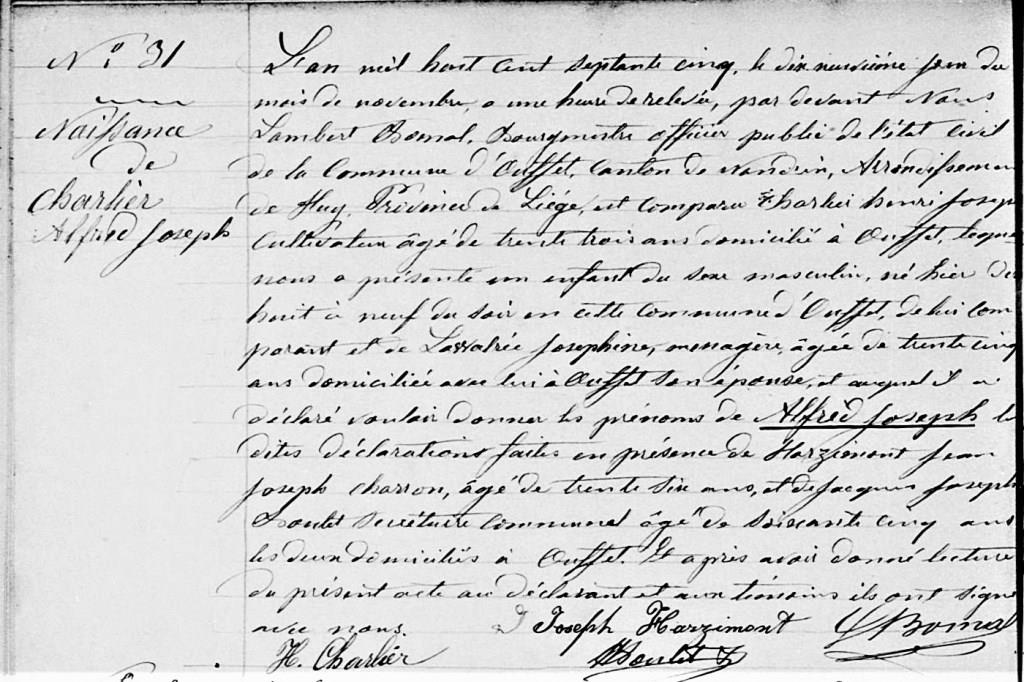 N° 31
Naissance
de
Charlier
Alfred Joseph
L'an mil huit cent septante cinq, le dix neuvième jour du
mois de novembre, a une heure de relevée, par devant Nous
Lambert Bomal, Bourgmestre officier public de l'état civil
de la Commune d'Ouffet, canton de Nandrin, Arrondissement
de Huy, Province de Liége, est comparu Charlier henri Joseph
Cultivateur âgé de trente trois ans domicilié à Ouffet, lequel
nous a présenté un enfant du sexe masculin, né hier de
huit à neuf du soir en cette commune d'Ouffet, de lui com
parant et de Josephine, menagère, âgée de trente cinq
ans domiciliée avec lui à Ouffet son épouse, et auquel il a
déclaré vouloir donner les prénoms de Alfred Joseph les
dites déclarations faites en présence de Harzimont Jean
Joseph charron, âgé de trente six ans, et de Jacques Joseph
Doulet secrétaire communal âgé de soixante cinq ans
les deux domiciliés à Ouffet. Et après avoir donné lecture
du présent acte au déclarant et aux témoins ils ont signé
avec nous. J Joseph Harzimont LBomal
H. Charlier Doulet